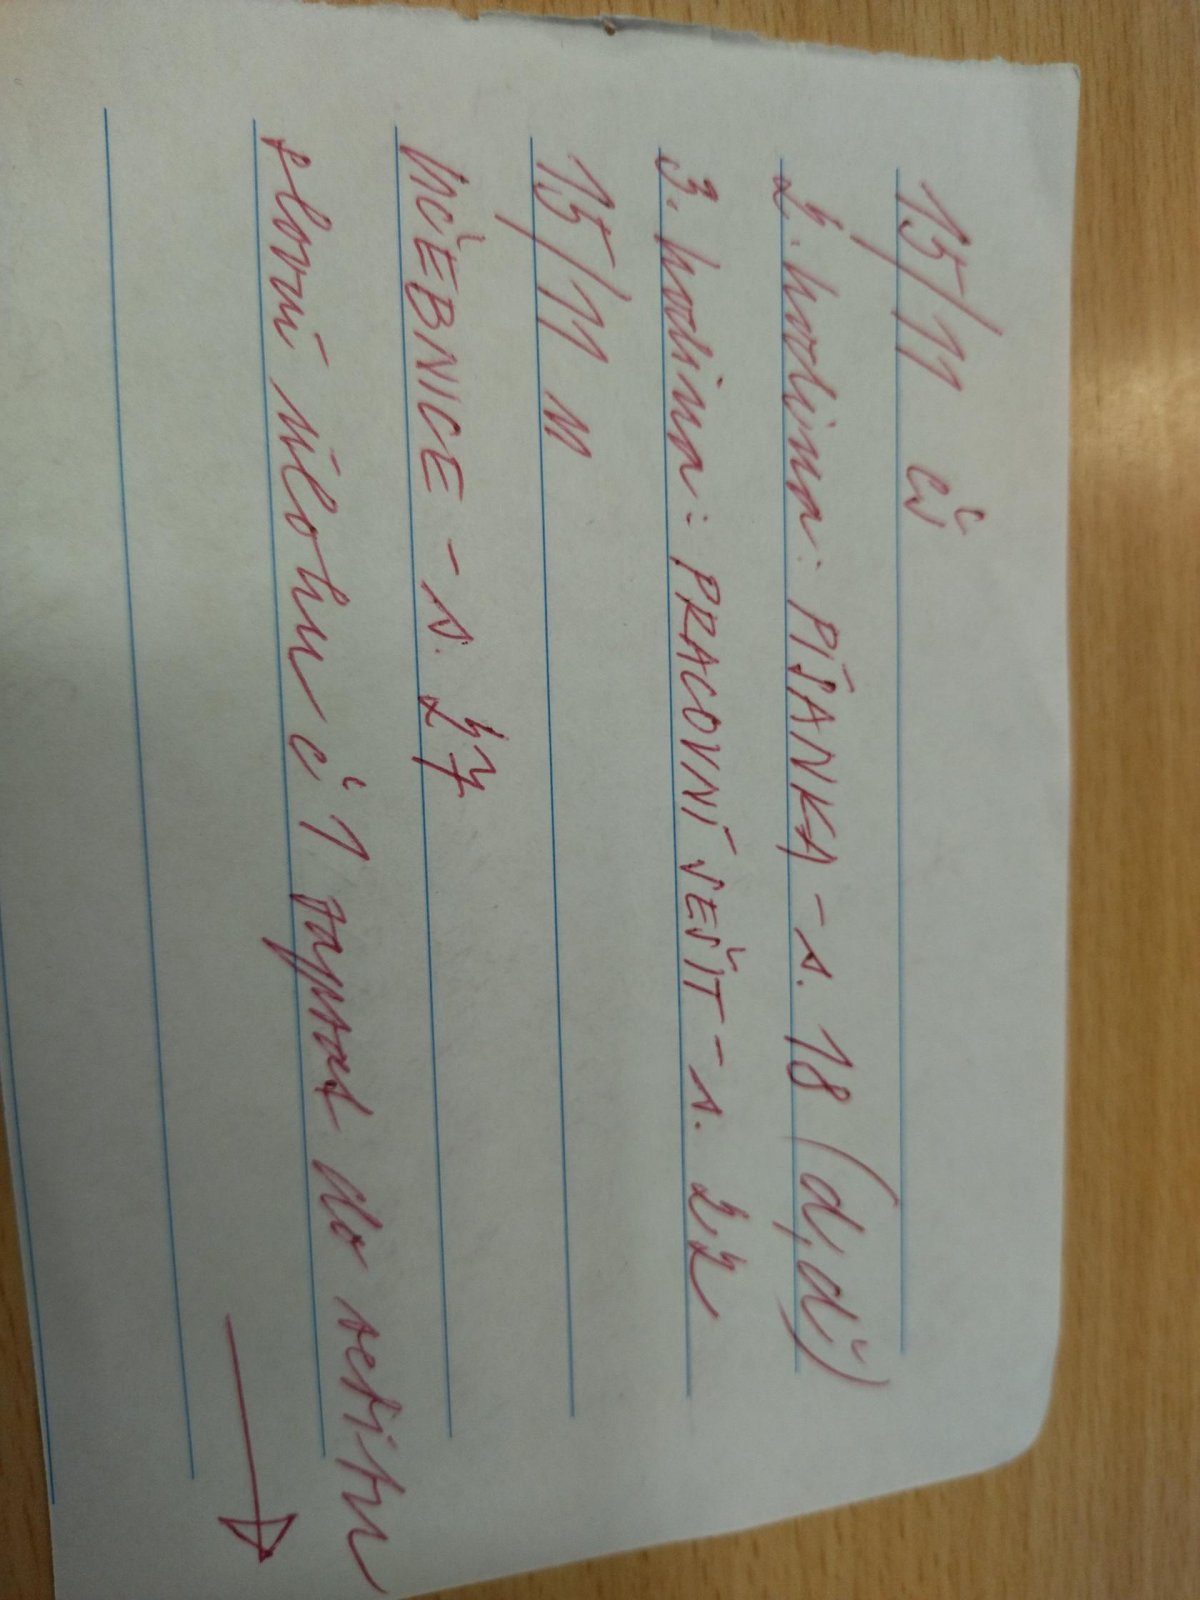 15/11 čš
2. hodina: PÍSANKA - s. 18 (d, ď)
3. hodina: PRACOVNÍ SEŠIT - s. 22
15/11 M
UČEBNICE - s. 27
slovní úlohu č 1 zapsat do sešitu